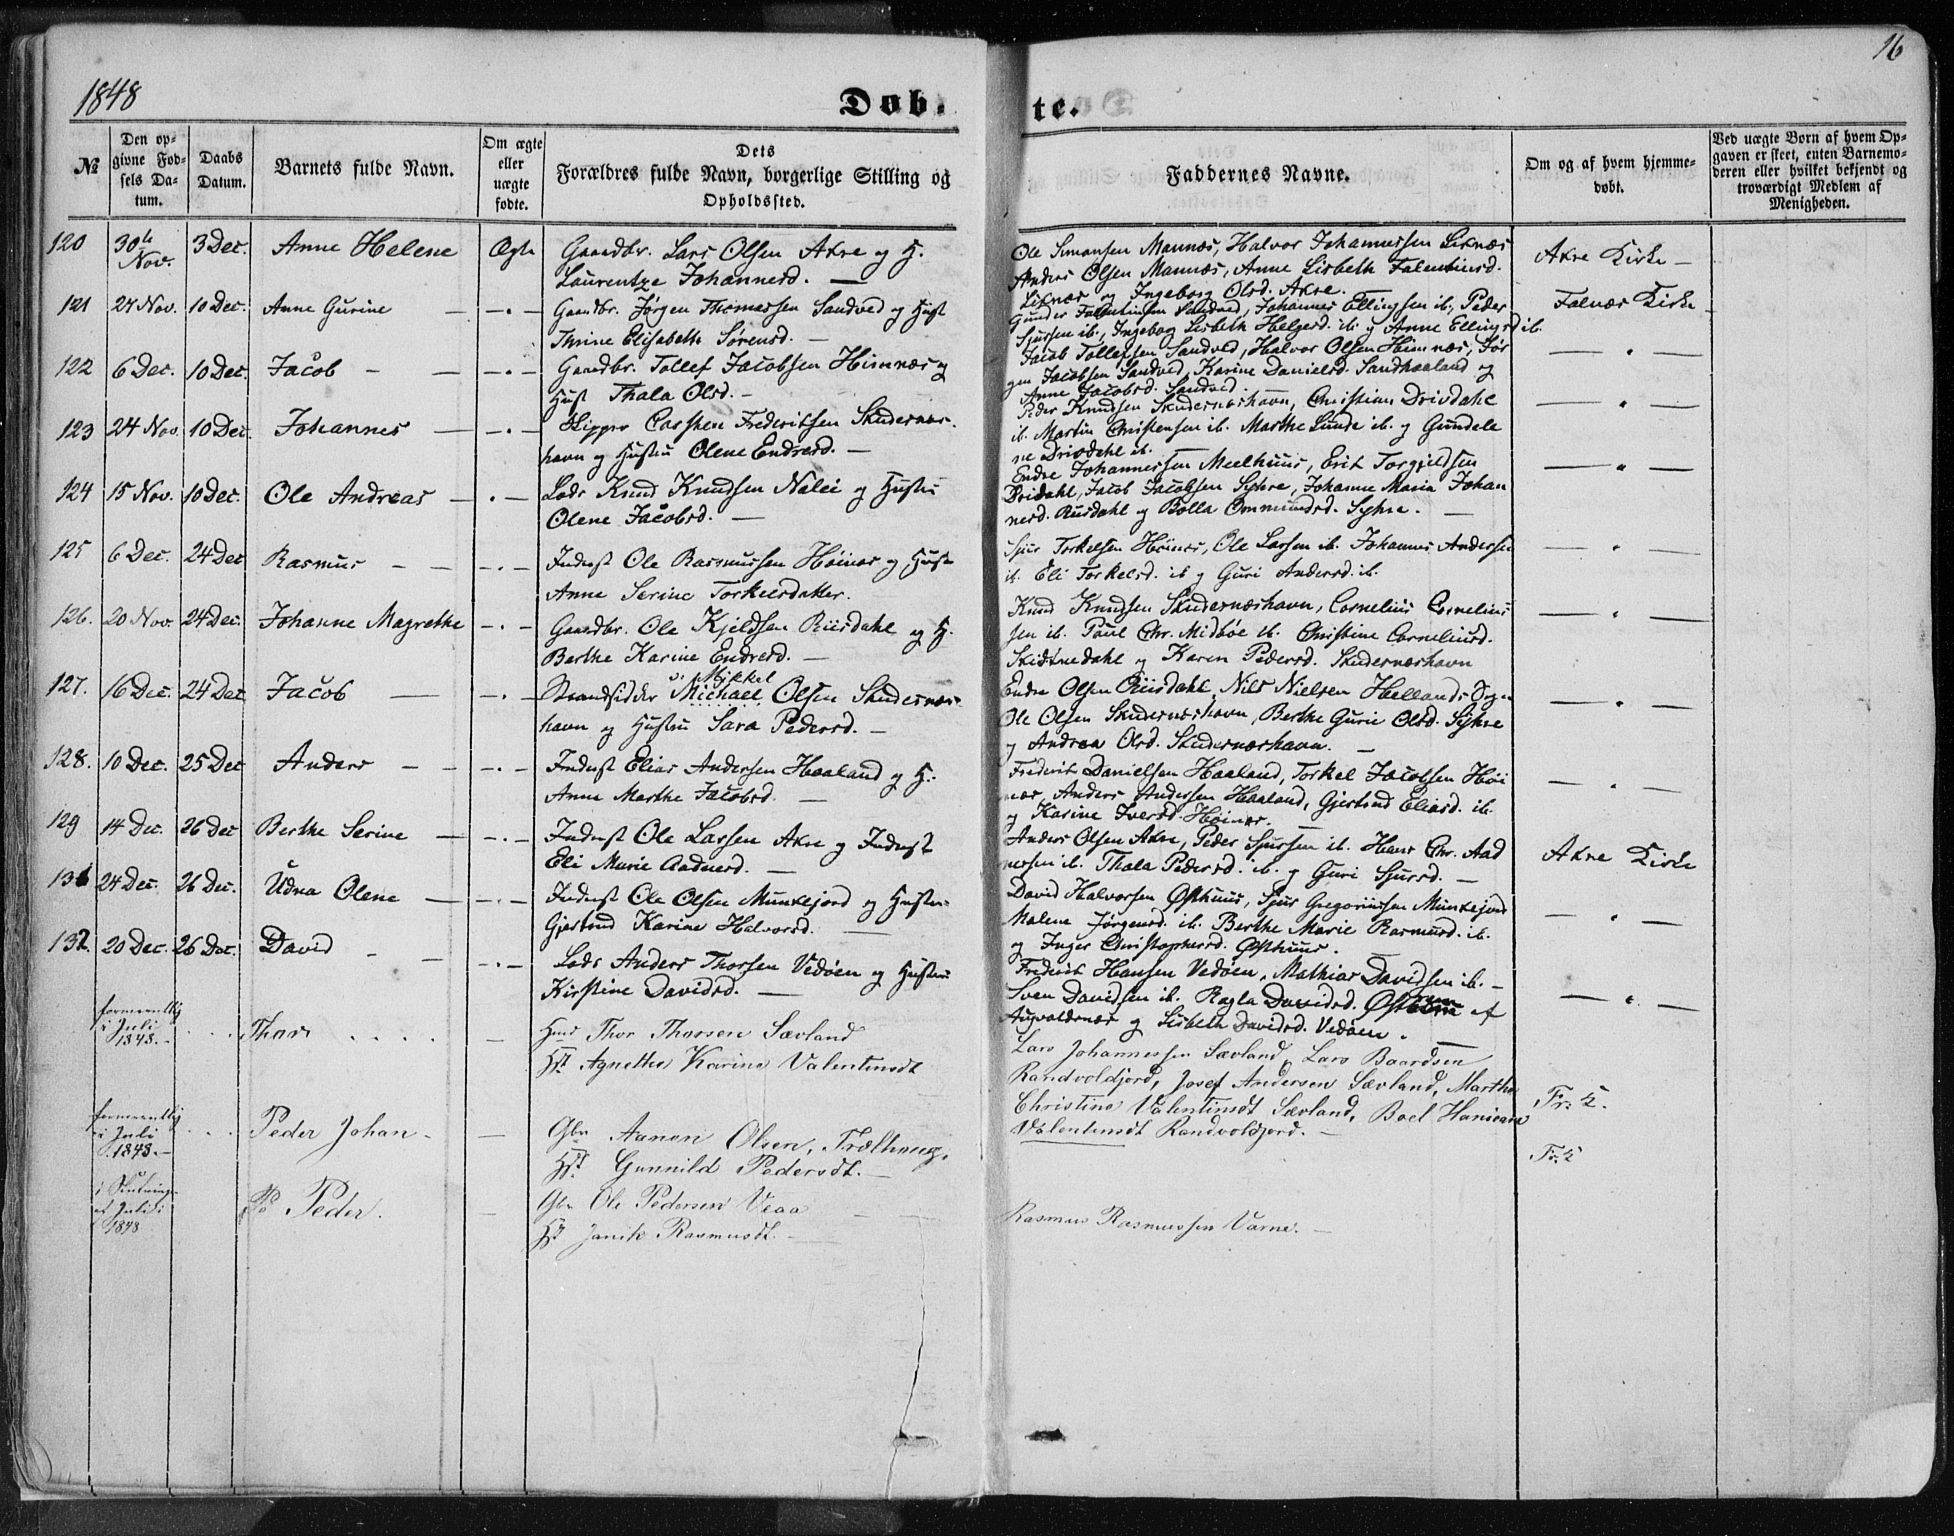 1848
16
Døb-
te.
№
Den op-
givne Fød-
sels Da-
tum.
Daabs
Datum.
Barnets fulde Navn.
Om ægte
eller
uægte
fødte.
Dets
Forældres fulde Navn, borgerlige Stilling og
Opholdssted.
Faddernes Navne.
Om og af hvem hjemme-
døbt.
Ved uægte Børn af hvem Op-
gaven er skeet, enten Barnemo-
deren eller hvilket bekjendt og
troværdigt Medlem af
Menigheden.
120 30te Nov. 3 Dec. Anne Helene Ægte
Gaardbr. Lars Olsen Akre og H.
Laurentze Johannesd. —
Ole Simonsen Mannæs, Halvor Johannessen Liknæs
Anders Olsen Mannæs, Anne Lisbeth Falentinsd.
Liknæs og Ingeborg Olsd. Akre.
Akre Kirke —
121 27 Nov. 10 Dec. Anne Gurine — - . -
Gaardbr. Jørgen Thomessen Sandved og Hust
Thrine Elisabeth Sørensd. —
Gunder Falentinsen Sandved, Johannes Ellingsen ib., Peder
Sjursen ib., Ingebog Lisbeth Helgesd. ib. og Anne Ellingsd ib.
Falnæs Kirke
122 6 Dec. 10 Dec. Jacob - - - . -
Gaardbr. Tollef Jacobsen Himnæs og
Hust Thala Olsd. —
Jacob Tollefsen Sandved, Halvor Olsen Himnæs, Jør
gen Jacobsen Sandved, Karine Danielsd. Sandhaaland og
Anne Jacobsd. Sandved.
— " —
123 24 Nov. 10 Dec. Johannes — - . -
Skipper Carsten Frederiksen Skudernæs-
havn og Hustru Olene Endresd. —
Peder Knudsen Skudernæshavn, Christian Drivdahl
ib. Martin Christensen ib. Marthe Lunde ib. og Gundele
ne Drivdahl ib.
— " —
124 15 Nov. 10 Dec. Ole Andreas - . -
Lods Knud Knudsen Nalei og Hustru
Olene Jacobsd. —
Endre Johannessen Meelhuus, Erik Torgjeldsen
Dridahl, Jacob Jacobsen Syhre, Johanne Maria Johan
nesd. Riisdahl og Bolla Ommundsd. Syhre. —
— " —
125 6 Dec. 24 Dec Rasmus - - - . -
Inderst Ole Rasmussen Høines og Hust
Anne Serine Torkelsdatter.
Sjur Torkelsen Høines, Ole Larsen ib. Johannes Andersen
ib. Eli Torkelsd. ib og Guri Andersd. ib.
— " —
126. 20 Nov. 24 Dec. Johanne Magrethe - . -
Gaardbr. Ole Kjeldsen Riisdahl og H.
Berthe Karine Endresd. —
Knud Knudsen Skudernæshavn, Cornelius Cornelius
sen ib. Poul Chr. Midbøe ib. Christine Corneliusd.
og Karen Pedersd. Skudernæshavn
— " —
127. 16 Dec. 24 Dec Jacob — - . -
Mikkel
Strandsidder Michael Olsen Skudernæs-
havn og Hustru Sara Pedersd. —
Endre Olsen Riisdahl, Nils Nielsen Hellands Sogn
Ole Olsen Skudernæshavn, Berthe Gurie Olsd. Syhre
og Andrea Olsd. Skudernæshavn. —
— " —
128. 10 Dec. 25 Dec Anders - - - . -
Inderst Elias Andersen Haaland og H.
Anne Marthe Jacobsd. —
Frederik Danielsen Haaland, Torkel Jacobsen Høi
nes, Anders Andersen Haaland, Gjertrud Eliasd. ib.
og Karine Iversd. Høines. —
— " —
129 14 Dec. 26 Dec Berthe Serine — - . -
Inderst Ole Larsen Akre og Inderst
Eli Marie Aadnesd. —
Anders Olsen Akre, Peder Sjursen ib. Hans Chr. Aad
nessen ib. Thala Pedersd. ib. og Guri Sjursd. —
Akre Kirke
131 24 Dec. 26 Dec. Udna Olene — - . -
Inderst Ole Olsen Munkejord og Hustru
Gjertrud Karine Halvorsd. —
David Halvorsen Østhuus, Sjur Gregoriussen Munkejord
Malene Jørgensd. ib. Berthe Marie Rasmusd. ib.
og Inger Christophersd. Østhuus.
— " —
132. 20 Dec. 26 Dec. David - - - . -
Lods Anders Thorsen Vedøen og Hustru
Kirstine Davidsd. —
Frederik Hansen Vedøen, Mathias Davidsen ib. -
Sven Davidsen ib. Ragla Davidsd. af
Augvaldsnæs og Lisbeth Davidsd. Vedøen. —
— " —
formeentlig
i Juli
1848. —
Thor . . . . —
Hmd Thor Thorsen Sævland
Hst. Agnethe Karine Valentinsdt
Lars Johannessen Sævland, Lars Baardsen
Randvoldjord, Josef Andersen Sævland, Marthe
Christine Valentinsdt Sævland, Boel Hansine
Valentinsdt Randvoldjord. —
Fr. K.
formeentlig
i Juli
1848. —
Peder Johan. —
Gbr Aanen Olsen, Trælhoug,
Hst. Gunnild Pedersdt. —
Fr. K
i Slutningen
af Juli
1848
Peder. —
Gbr Ole Pedersen Veaa
Hst Janik Rasmusdt. —
Rasmus Rasmussen Varne. —